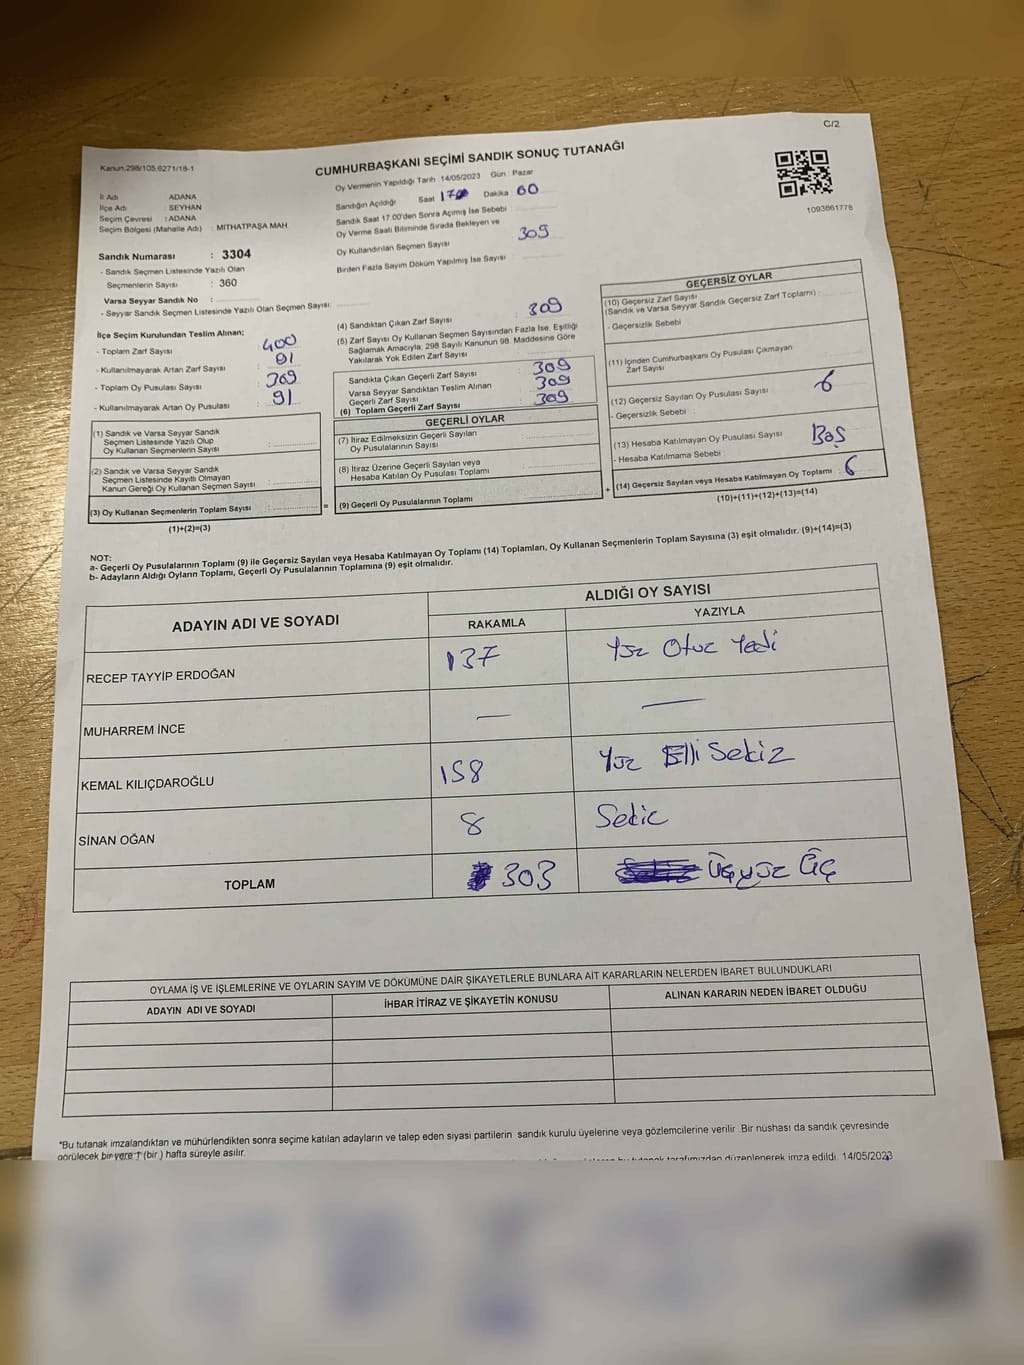 C/2
Kanun.298/105.6271/18-1
CUMHURBAŞKANI SEÇİMİ SANDIK SONUÇ TUTANAĞI
Oy Vermenin Yapıldığı Tarih :14/05/2023 Gün : Pazar
İl Adı : ADANA
İlçe Adı : SEYHAN
Seçim Çevresi : ADANA
Seçim Bölgesi (Mahalle Adı) : MITHATPAŞA MAH
Sandık Numarası : 3304
- Sandık Seçmen Listesinde Yazılı Olan
Seçmenlerin Sayısı : 360
Varsa Seyyar Sandık No :
- Seyyar Sandık Seçmen Listesinde Yazılı Olan Seçmen Sayısı:
Sandığın Açıldığı Saat Dakika : 60
Sandık Saat 17.00'den Sonra Açmış İse Sebebi :
Oy Verme Saati Bitiminde Sırada Bekleyen ve
Oy Kullandırılan Seçmen Sayısı 309
Birden Fazla Sayım Döküm Yapılmış İse Sayısı
1093661778
İlçe Seçim Kurulundan Teslim Alınan;
- Toplam Zarf Sayısı : 400
- Kullanılmayarak Artan Zarf Sayısı : 91
- Toplam Oy Pusulası Sayısı : 369
- Kullanılmayarak Artan Oy Pusulası : 91
(1) Sandık ve Varsa Seyyar Sandık
Seçmen Listesinde Yazılı Olup
Oy Kullanan Seçmenlerin Sayısı :
(2) Sandık ve Varsa Seyyar Sandık
Seçmen Listesinde Kayıtlı Olmayan
Kanun Gereği Oy Kullanan Seçmen Sayısı :
(3) Oy Kullanan Seçmenlerin Toplam Sayısı :
(1)+(2)=(3)
(4) Sandıktan Çıkan Zarf Sayısı : 309
(5) Zarf Sayısı Oy Kullanan Seçmen Sayısından Fazla İse, Eşitliği
Sağlamak Amacıyla, 298 Sayılı Kanunun 98. Maddesine Göre
Yakılarak Yok Edilen Zarf Sayısı :
Sandıkta Çıkan Geçerli Zarf Sayısı : 309
Varsa Seyyar Sandıktan Teslim Alınan
Geçerli Zarf Sayısı : 309
(6) Toplam Geçerli Zarf Sayısı : 309
GEÇERLİ OYLAR
(7) İtiraz Edilmeksizin Geçerli Sayılan
Oy Pusulalarının Sayısı :
(8) İtiraz Üzerine Geçerli Sayılan veya
Hesaba Katılan Oy Pusulası Toplamı :
= (9) Geçerli Oy Pusulalarının Toplamı :
GEÇERSİZ OYLAR
(10) Geçersiz Zarf Sayısı
(Sandık ve Varsa Seyyar Sandık Geçersiz Zarf Toplamı) :
- Geçersizlik Sebebi :
(11) İçinden Cumhurbaşkanı Oy Pusulası Çıkmayan
Zarf Sayısı :
(12) Geçersiz Sayılan Oy Pusulası Sayısı : 6
- Geçersizlik Sebebi :
(13) Hesaba Katılmayan Oy Pusulası Sayısı : Boş
- Hesaba Katılmama Sebebi :
+ (14) Geçersiz Sayılan veya Hesaba Katılmayan Oy Toplamı : 6
(10)+(11)+(12)+(13)=(14)
NOT:
a- Geçerli Oy Pusulalarının Toplamı (9) ile Geçersiz Sayılan veya Hesaba Katılmayan Oy Toplamı (14) Toplamları, Oy Kullanan Seçmenlerin Toplam Sayısına (3) eşit olmalıdır. (9)+(14)=(3)
b- Adayların Aldığı Oyların Toplamı, Geçerli Oy Pusulalarının Toplamına (9) eşit olmalıdır.
ADAYIN ADI VE SOYADI ALDIĞI OY SAYISI
RAKAMLA YAZIYLA
RECEP TAYYİP ERDOĞAN 137 Yüz Otuz Yedi
MUHARREM İNCE — —
KEMAL KILIÇDAROĞLU 158 Yüz Elli Sekiz
SİNAN OĞAN 8 Sekiz
TOPLAM 303 Üçyüz Üç
OYLAMA İŞ VE İŞLEMLERİNE VE OYLARIN SAYIM VE DÖKÜMÜNE DAİR ŞİKAYETLERLE BUNLARA AİT KARARLARIN NELERDEN İBARET BULUNDUKLARI
ADAYIN ADI VE SOYADI İHBAR İTİRAZ VE ŞİKAYETİN KONUSU ALINAN KARARIN NEDEN İBARET OLDUĞU
*Bu tutanak imzalandıktan ve mühürlendikten sonra seçime katılan adayların ve talep eden siyasi partilerin sandık kurulu üyelerine veya gözlemcilerine verilir. Bir nüshası da sandık çevresinde
görülecek bir yere 1 (bir) hafta süreyle asılır.
tarafımızdan düzenlenerek imza edildi. 14/05/2023